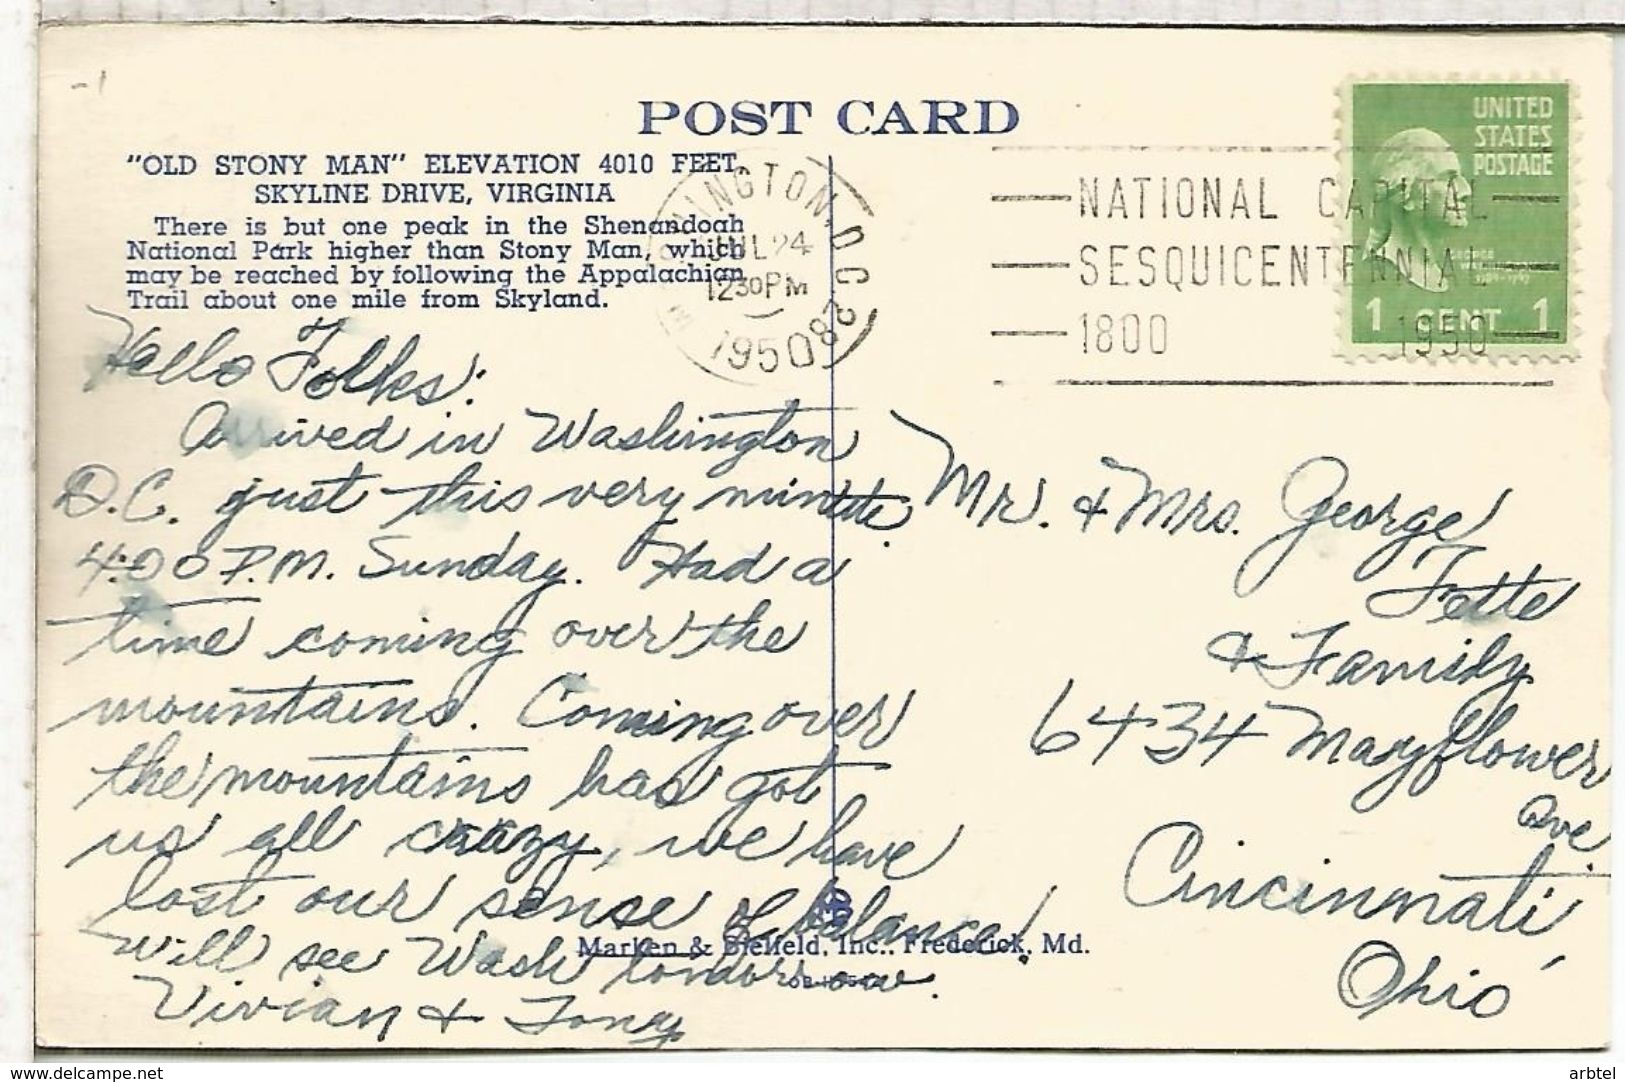 -1
POST CARD
"OLD STONY MAN" ELEVATION 4010 FEET
SKYLINE DRIVE, VIRGINIA
There is but one peak in the Shenandoah
National Park higher than Stony Man, which
may be reached by following the Appalachian
Trail about one mile from Skyland.
INGTON, D.C.
JUL 24
12 30 PM
1950
NATIONAL CAPITAL
SESQUICENTENNIAL
1800 1950
UNITED
STATES
POSTAGE
GEORGE
WASHINGTON
1 CENT 1
Hello Folks:
Arrived in Washington
D.C. just this very minute.
4:00 P.M. Sunday. Had a
time coming over the
mountains. Coming over
the mountains has got
us all crazy, we have
lost our sense of balance!
Will see Wash tomorrow.
Vivian & Tony
Mr. & Mrs. George
Fette
& Family
6434 Mayflower
Ave
Cincinnati,
Ohio
Marken & Bielfeld, Inc., Frederick, Md.
www.delcampe.net
arbtel